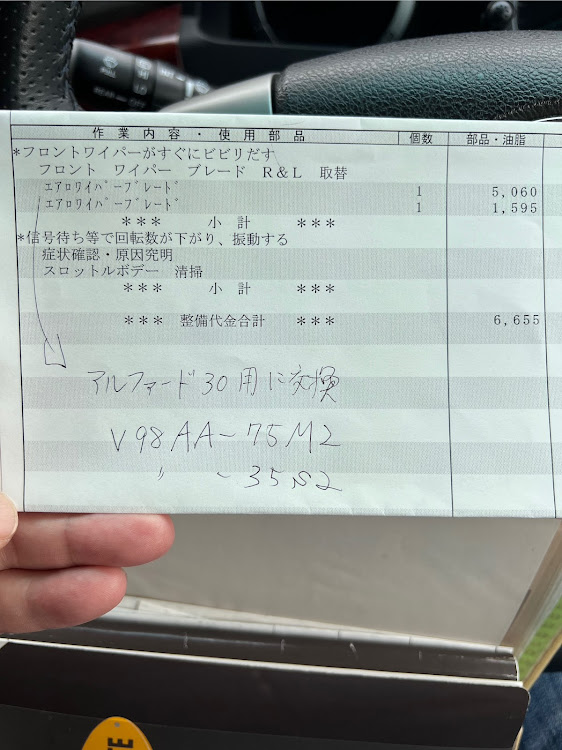 作業内容・使用部品 個数 部品・油脂
*フロントワイパーがすぐにビビりだす
フロント ワイパー ブレード R&L 取替
エアロワイパーブレード 1 5,060
エアロワイパーブレード 1 1,595
*** 小計 ***
*信号待ち等で回転数が下がり、振動する
症状確認・原因究明
スロットルボデー 清掃
*** 小計 ***
*** 整備代金合計 *** 6,655
アルファード30用に交換
V98AA~75M2
〃 ~35S2